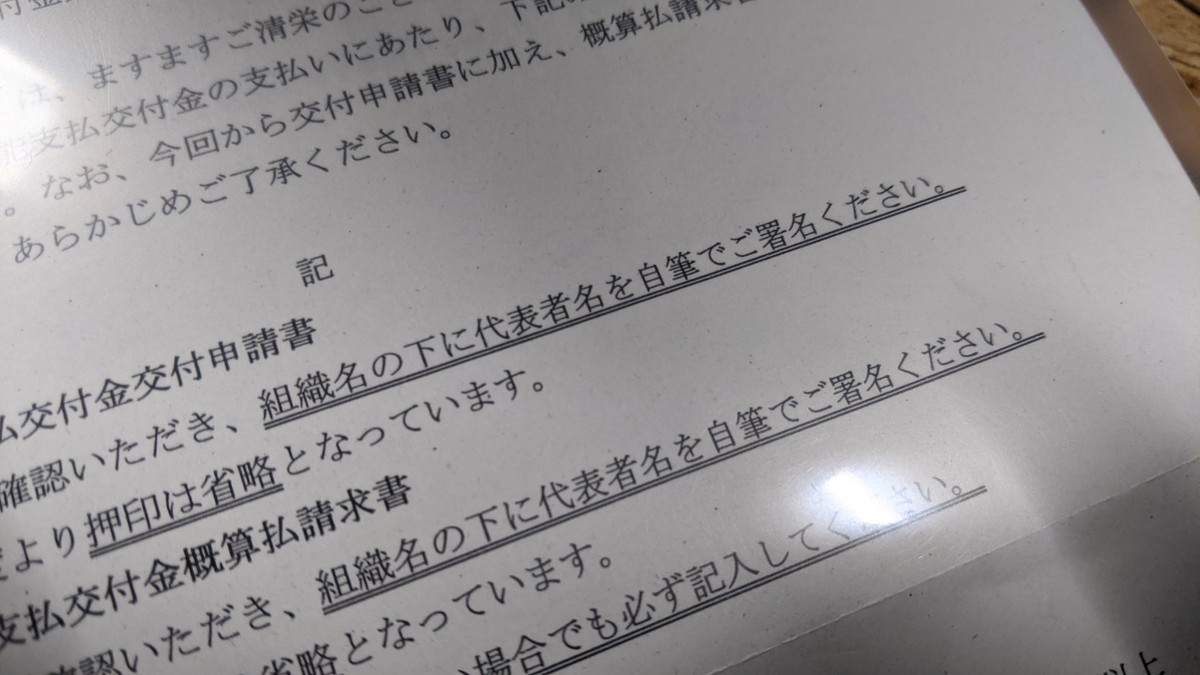 は、ますますご清栄のこと
能支払交付金の支払いにあたり、下記の
。なお、今回から交付申請書に加え、概算払請求書
あらかじめご了承ください。
記
払交付金交付申請書
確認いただき、組織名の下に代表者名を自筆でご署名ください。
より押印は省略となっています。
支払交付金概算払請求書
確認いただき、組織名の下に代表者名を自筆でご署名ください。
省略となっています。
場合でも必ず記入してください。
以上